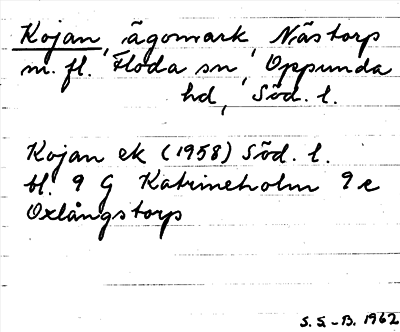 Kojan, ägomark, Nästorp
m. fl. Floda sn, Oppunda
hd, Söd. l.
Kojan ek (1958) Söd. l.
bl. 9 G Katrineholm 9 e
Oxlångstorp
S. S.-B. 1962